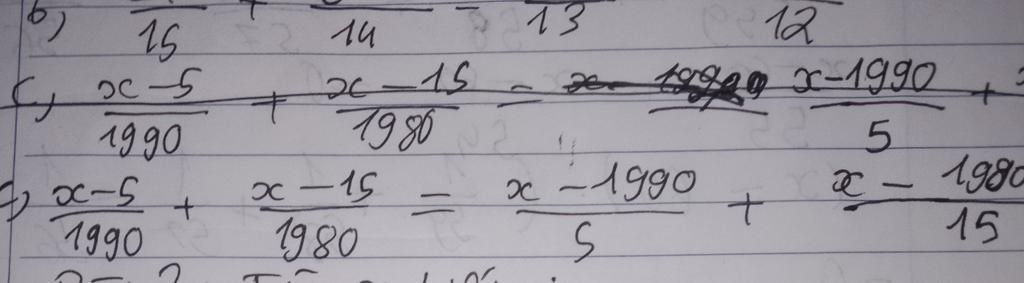 b) /15 + /14 = /13 /12
c) (x-5)/1990 + (x-15)/1980 = (x-1990)/5 +
(x-5)/1990 + (x-15)/1980 = (x-1990)/5 + (x-1980)/15